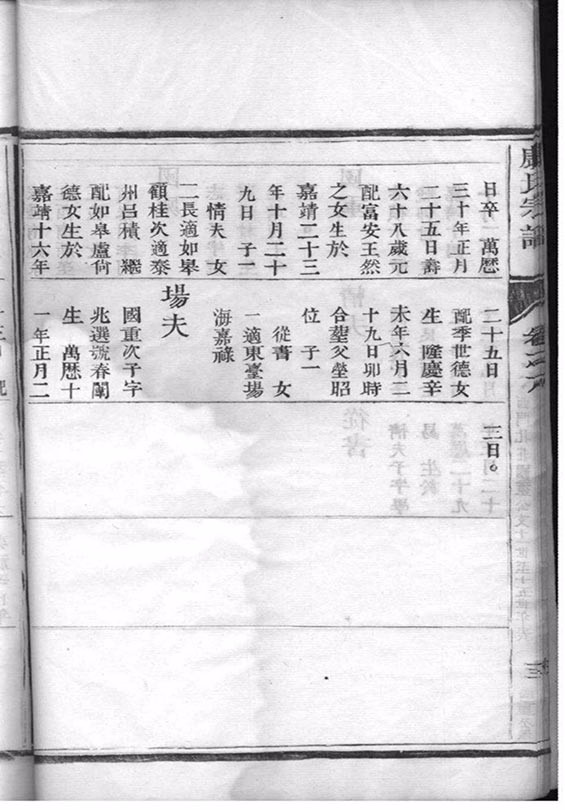 氏宗譜
卷之八
日卒 萬曆
三十年正月
二十五日壽
六十八歲元
配富安王然
之女生於
嘉靖二十三
年十月二十
九日 子一
情夫 女
二長適如皋
顧桂次適泰
州呂積 繼
配如皋盧尙
德女生於
嘉靖十六年
二十五日
配季世德女
生 隆慶辛
未年六月二
十九日卯時
合塟父塋昭
位 子一
從書 女
一適東臺場
海嘉祿
場夫
國重次子字
兆選號春
生 萬曆十
一年正月二
三日。